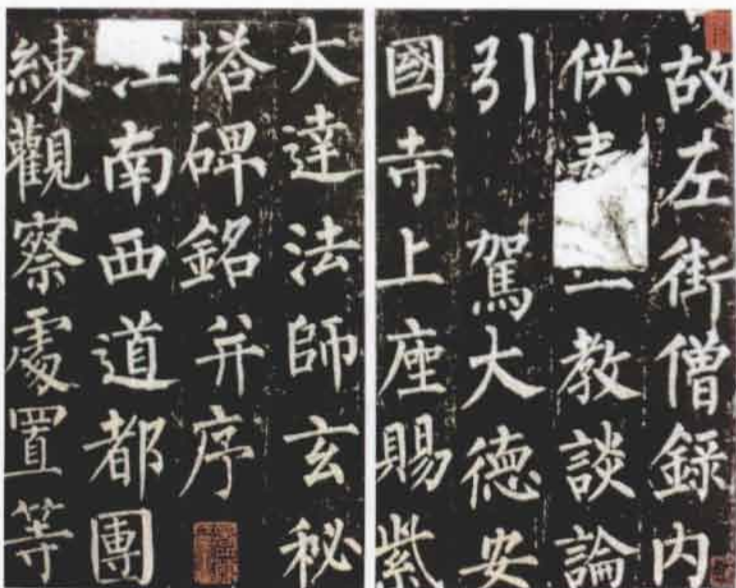 故左街僧錄内
供教談論
引駕大德安
國寺上座賜紫
大達法師玄秘
塔碑銘并序
南西道都團
練觀察處置等